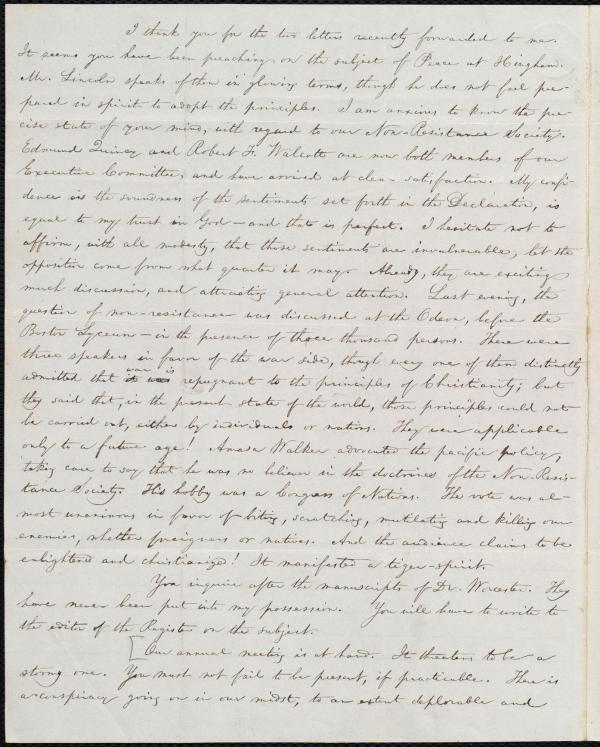 I thank you for the two letters recently forwarded to me.
It seems you have been preaching on the subject of Peace at Hingham.
Mr. Lincoln speaks of them in glowing terms, though he does not feel pre-
pared in spirit to adopt the principles. I am anxious to know the pre-
cise state of your mind, with regard to our Non-Resistance Society.
Edmund Quincy and Robert F. Walcott are now both members of our
Executive Committee, and have arrived at clear satisfaction. My confi-
dence in the soundness of the sentiments set forth in the Declaration, is
equal to my trust in God — and that is perfect. I hesitate not to
affirm, with all modesty, that those sentiments are invulnerable, let the
opposition come from what quarter it may. Already, they are exciting
much discussion, and attracting general attention. Last evening, the
question of non-resistance was discussed at the Odeon, before the
Boston Lyceum — in the presence of three thousand persons. There were
three speakers in favor of the war side, though every one of them distinctly
admitted that war is repugnant to the principles of Christianity; but
they said that, in the present state of the world, those principles could not
be carried out, either by individuals or nations. They were applicable
only to a future age! Amasa Walker advocated the pacific policy,
taking care to say that he was no believer in the doctrines of the Non-Resis-
tance Society. His hobby was a Congress of Nations. The vote was al-
most unanimous in favor of biting, scratching, mutilating and killing our
enemies, whether foreigners or natives. And the audience claims to be
enlightened and christianized! It manifested a tiger-spirit.
You inquire after the manuscripts of Dr. Worcester. They
have never been put into my possession. You will have to write to
the editor of the Register on the subject.
[Our annual meeting is at hand. It threatens to be a
stormy one. You must not fail to be present, if practicable. There is
a conspiracy going on in our midst, to an extent deplorable and